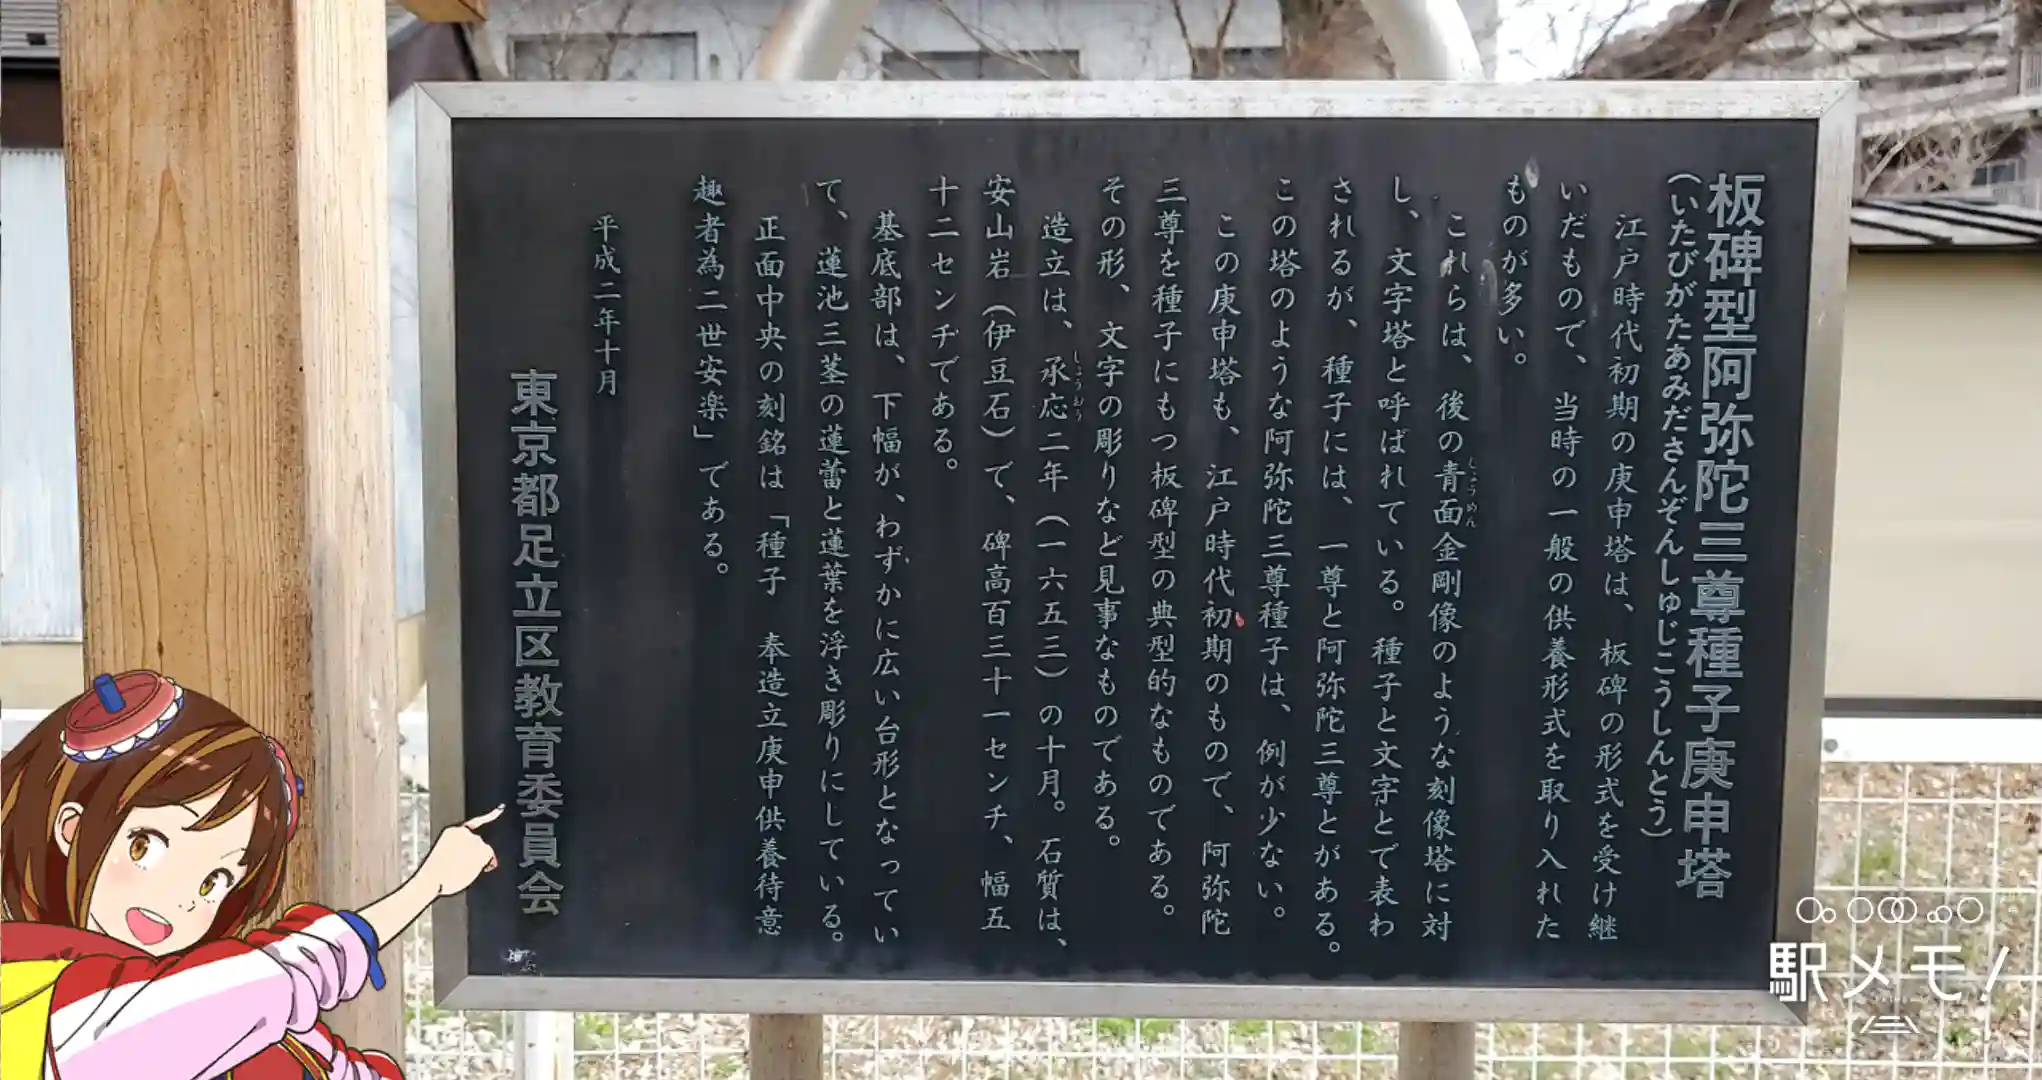 板碑型阿弥陀三尊種子庚申塔
（いたびがたあみださんぞんしゅじこうしんとう）
江戸時代初期の庚申塔は、板碑の形式を受け継
いだもので、当時の一般の供養形式を取り入れた
ものが多い。
これらは、後の青面金剛像のような刻像塔に対
しょうめん
し、文字塔と呼ばれている。種子と文字とで表わ
されるが、種子には、一尊と阿弥陀三尊とがある。
この塔のような阿弥陀三尊種子は、例が少ない。
この庚申塔も、江戸時代初期のもので、阿弥陀
三尊を種子にもつ板碑型の典型的なものである。
その形、文字の彫りなど見事なものである。
造立は、承応二年（一六五三）の十月。石質は、
しょうおう
安山岩（伊豆石）で、碑高百三十一センチ、幅五
十二センチである。
基底部は、下幅が、わずかに広い台形となってい
て、蓮池三茎の蓮蕾と蓮葉を浮き彫りにしている。
正面中央の刻銘は「種子　奉造立庚申供養待意
趣者為二世安楽」である。
平成二年十月
東京都足立区教育委員会
駅メモ!